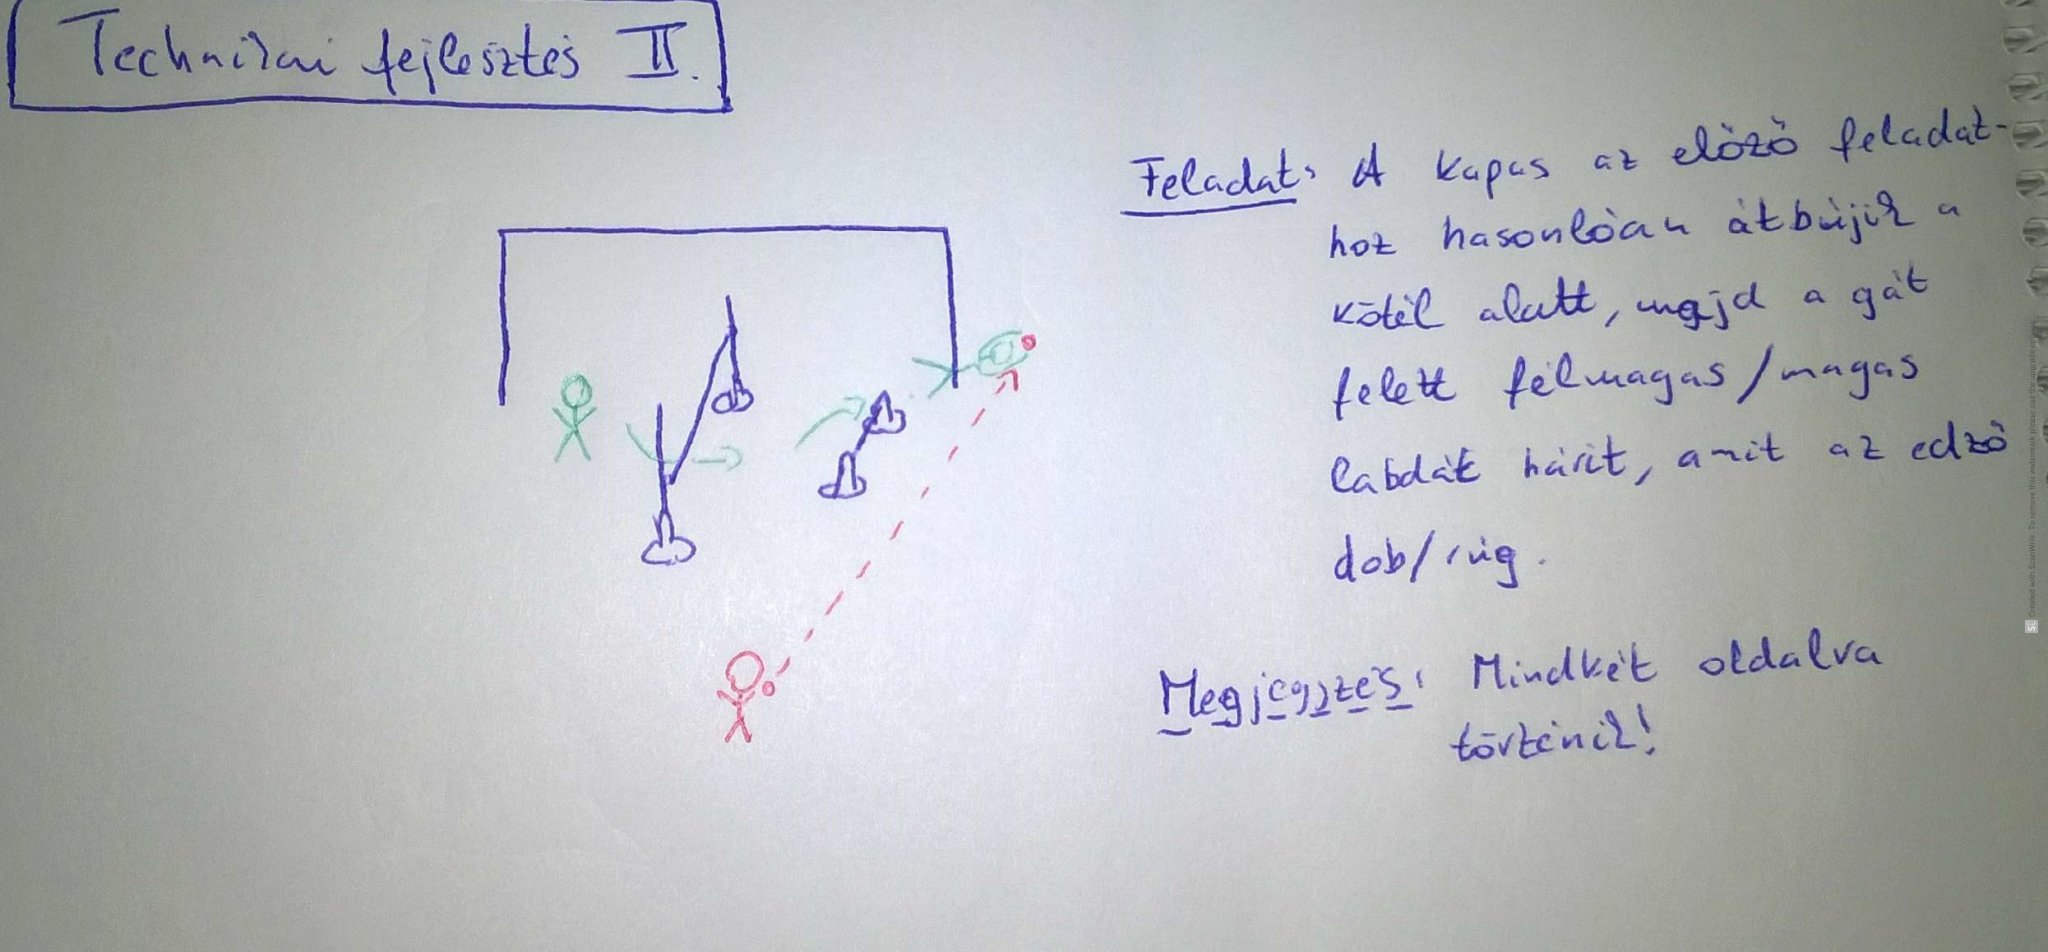 Technikai fejlesztés II.
Feladat: A kapus az előző feladat-
hoz hasonlóan átbújik a
kötél alatt, majd a gát
felett félmagas/magas
labdát hárít, amit az edző
dob/rúg.
Megjegyzés: Mindkét oldalra
történik!